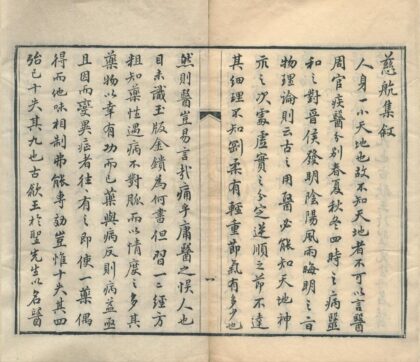 慈航集叙
人身一小天地也故不知天地者不可以言醫
周官疾醫分別春夏秋冬四時之病醫
和之對晉侯發明陰陽風雨晦明之旨
物理論則云古之用醫必能知天地神
示之次處虛實之分定逆順之節不達
其細理不知剛柔有輕重節氣有多少也
一
然則醫豈易言哉痛乎庸醫之悮人也
目未識玉版金鎖為何書但習一二經方
粗知藥性遇病不對脈而以情度之多其
藥物以幸有功而已藥與病反則病益亟
且因而變異症者往往有之即使一藥偶
得而他味相制弗能專訪豈惟十失其四
殆已十失其九也古歙王於聖先生以名醫